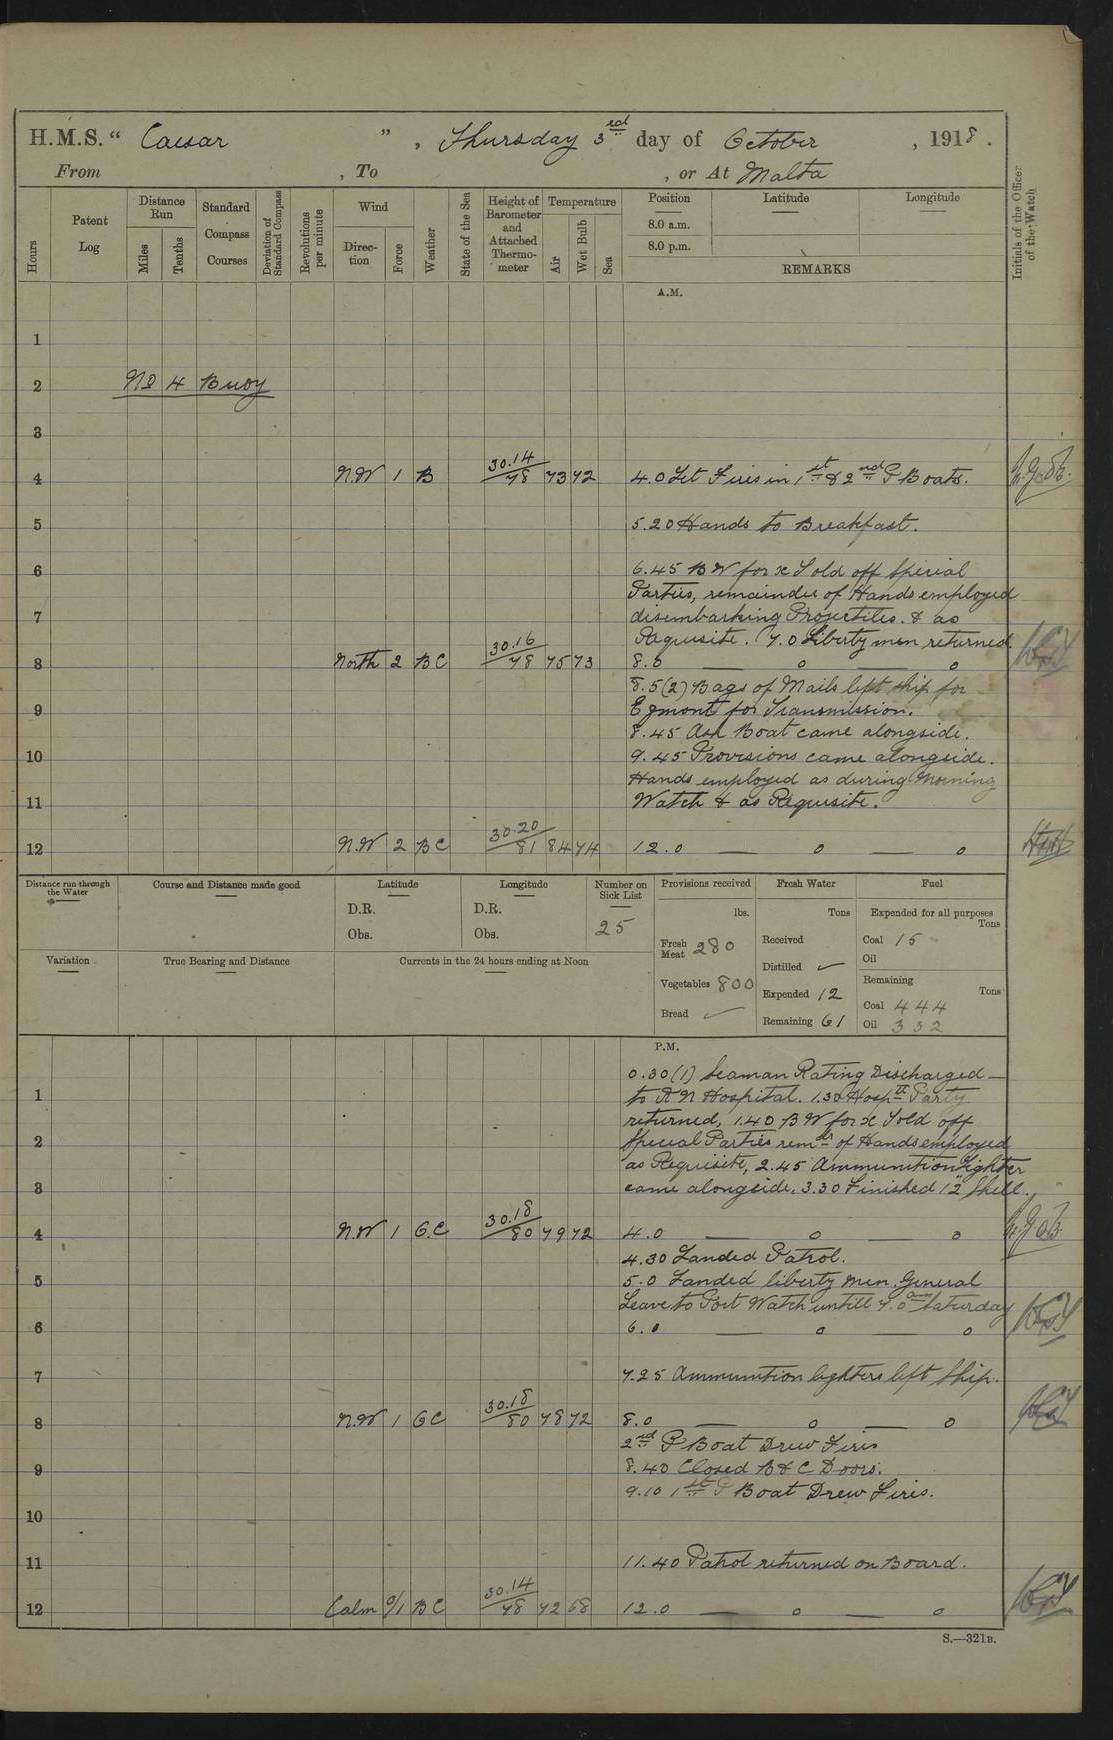 H.M.S. “ Caesar ” , Thursday 3rd day of October , 1918 .
From , To , or At Malta
Hours
Patent Log
Distance Run
Miles
Tenths
Standard Compass Courses
Deviation of Standard Compass
Revolutions per minute
Wind
Direction
Force
Weather
State of the Sea
Height of Barometer and Attached Thermometer
Temperature
Air
Wet Bulb
Sea
Position
8.0 a.m.
8.0 p.m.
Latitude
Longitude
REMARKS
Initials of the Officer of the Watch
A.M.
1
2 No 4 Buoy
3
4 N.W 1 B 30.14 78 73 72 4.0 Let Fires in 1st & 2nd P Boats.
5 5.20 Hands to Breakfast.
6 6.45 B W for x Told off Special
Parties, remainder of Hands employed
7 disembarking Projectiles. & as
Requisite. 7.0 Liberty men returned.
8 North 2 BC 30.16 78 75 73 8.0 — o — o
8.5 (2) Bags of Mails left ship for
9 Egmont for Transmission.
8.45 Ash Boat came alongside.
10 9.45 Provisions came alongside.
Hands employed as during Morning
11 Watch & as Requisite.
12 N.W 2 BC 30.20 81 84 74 12.0 — o — o
Distance run through the Water
Course and Distance made good
Latitude
D.R.
Obs.
Longitude
D.R.
Obs.
Number on Sick List
25
Provisions received
lbs.
Fresh Meat 280
Vegetables 800
Bread ✓
Fresh Water
Tons
Received
Distilled ✓
Expended 12
Remaining 61
Fuel
Expended for all purposes
Tons
Coal 15
Oil
Remaining
Tons
Coal 444
Oil 332
Variation
True Bearing and Distance
Currents in the 24 hours ending at Noon
P.M.
0.30 (1) Seaman Rating Discharged —
1 to R N Hospital. 1.30 Hospl Party
returned, 1.40 B W for x Told off
2 Special Parties remdr of Hands employed
as Requisite, 2.45 Ammunition Lighter
3 came alongside. 3.30 Finished 12" Shell.
4 N.W 1 G.C 30.18 80 79 72 4.0 — o — o
4.30 Landed Patrol.
5 5.0 Landed liberty men. General
Leave to Port Watch untill 7.0 am Saturday
6 6.0 — o — o
7 7.25 Ammunition lighters left Ship.
8 N.W 1 GC 30.18 80 78 72 8.0 — o — o
2nd P Boat Drew Fires
9 8.40 Closed B & C Doors.
9.10 1st P Boat Drew Fires.
10
11 11.40 Patrol returned on Board.
12 Calm 0/1 BC 30.14 78 72 68 12.0 — o — o
S.—321B.